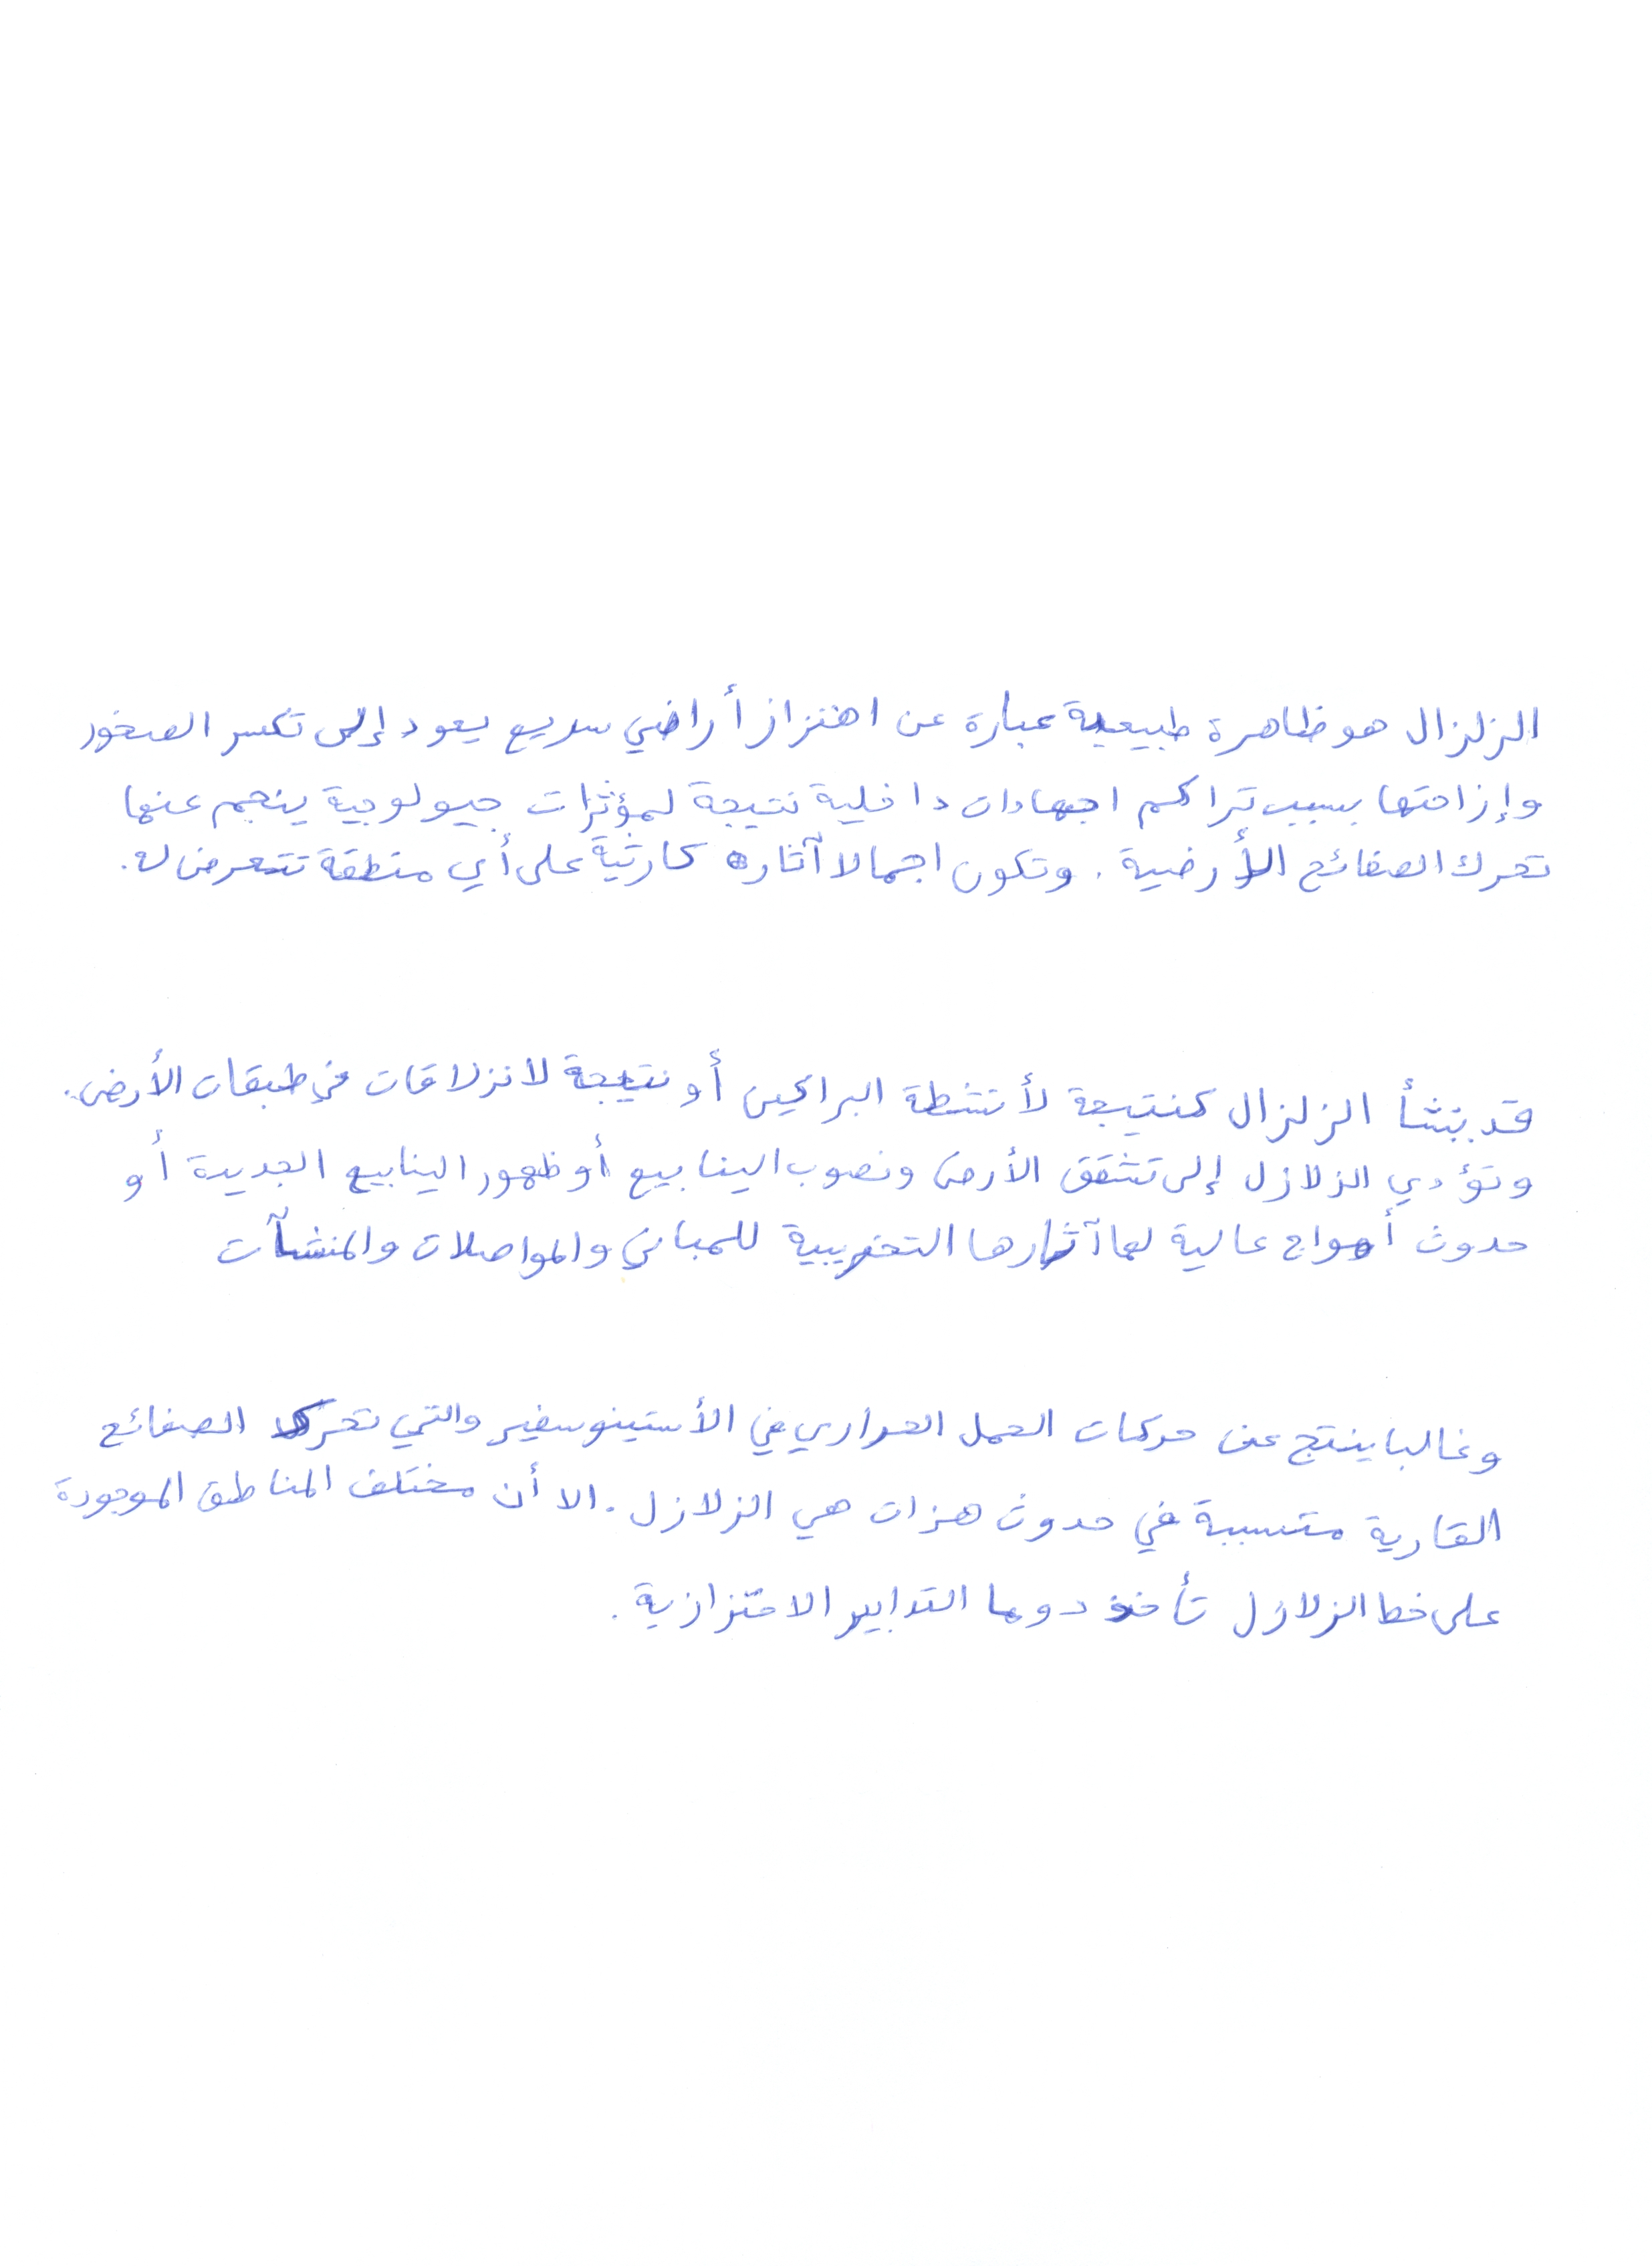 الزلزال هو ظاهرة طبيعية عبارة عن اهتزاز أراضي سريع يعود إلى تكسر الصخور
وإزاحتها بسبب تراكم اجهادات داخلية نتيجة لمؤثرات جيولوجية ينجم عنها
تحرك الصفائح الأرضية. وتكون اجمالا آثاره كارثية على أي منطقة تتعرض له.
قد ينشأ الزلزال كنتيجة لأنشطة البراكين أو نتيجة لانزلاقات في طبقات الأرض.
وتؤدي الزلازل إلى تشقق الأرض ونضوب الينابيع أو ظهور الينابيع الجديدة أو
حدوث أمواج عالية لها آثارها التخريبية للمباني والمواصلات والمنشآت
وغالبا ينتج عن حركات الحمل الحراري في الأستينوسفير والتي تحرك الصفائح
القارية متسببة في حدوث هزات هي الزلازل. الا أن مختلف المناطق الموجودة
على خط الزلازل تأخذ دوما التدابير الاحترازية.